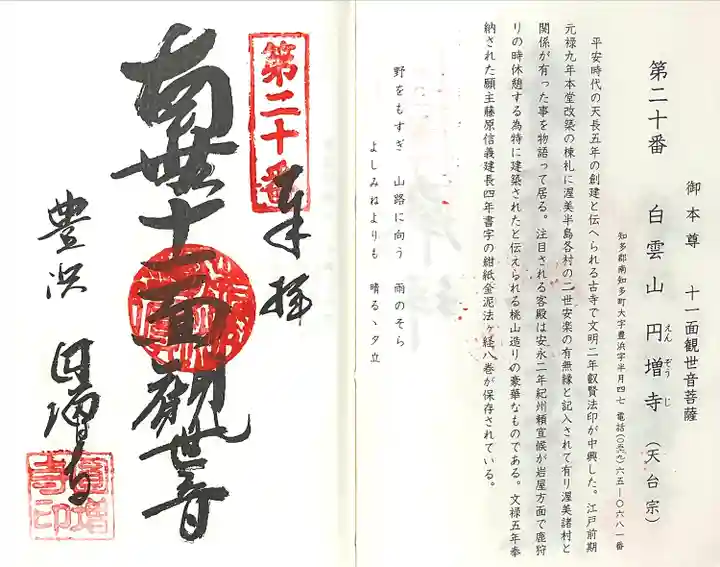 御本尊 十一面観世音菩薩
第二十番 白雲山 円増寺 (天台宗)
えん ぞう じ
知多郡南知多町大字豊浜字半月四七 電話(〇五六九)六五―〇六八一番
平安時代の天長五年の創建と伝へられる古寺で文明二年叡賢法印が中興した。江戸前期
元禄九年本堂改築の棟札に渥美半島各村の二世安楽の有無縁と記入されて有り渥美諸村と
関係が有った事を物語って居る。注目される客殿は安永二年紀州頼宣候が岩屋方面で鹿狩
りの時休憩する為特に建築されたと伝えられる桃山造りの豪華なものである。文禄五年奉
納された願主藤原信義建長四年書字の紺紙金泥法ヶ経八巻が保存されている。
野をもすぎ 山路に向う 雨のそら
よしみねよりも 晴るゝ夕立
第二十番
奉拝
南無十一面観世音
豊浜 円増寺
円増
寺印